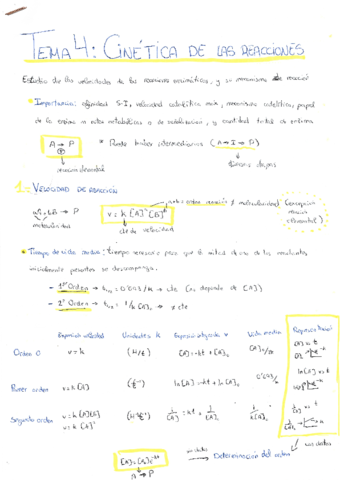 TEMA 4: CINÉTICA DE LAS REACCIONES
Estudio de las velocidades de las reacciones enzimáticas, y su mecanismo de reacción
• Importancia: afinidad S-I, velocidad catalítica máx, mecanismo catalítico, papel
de la enzima en rutas metabólicas o de señalización, y cantidad total de enzima
A → P
* Puede haber intermediarios (A → I → P)
reacción elemental
1. VELOCIDAD DE REACCIÓN
aA + bB → P
v = k [A]ᵃ [B]ᵇ
cte de velocidad
• Tiempo de vida media: tiempo necesario para que la mitad de uno de los reactantes
inicialmente presentes se descomponga.
- 1er Orden → t₁/₂ = 0'693/k → cte (no depende de [A])
- 2º Orden → t₁/₂ = 1/k[A]₀ → ≠ cte
Expresión velocidad Unidades k Expresión integrada v Vida media Representación
Orden 0 v = k (M/t) [A] = -kt + [A]₀ [A]₀/2k [A] vs t
Primer orden v = k [A] (t⁻¹) ln[A] = -kt + ln[A]₀ 0'693/k ln[A] vs t
Segundo orden v = k [A][B] (M⁻¹t⁻¹) 1/[A] = kt + 1/[A]₀ 1/k[A]₀ 1/[A] vs t
v = k [A]²
[A] = [A]₀ e⁻ᵏᵗ
A → P
Determinación del orden